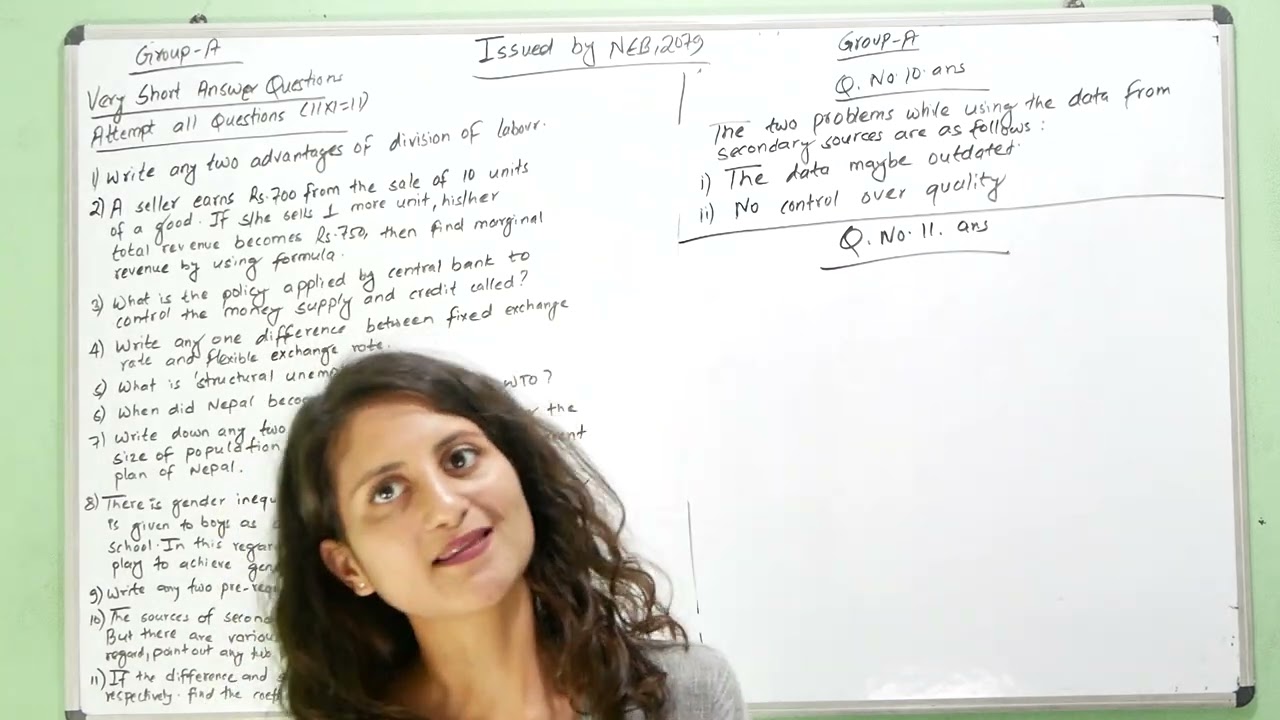 Group-A
Issued by NEB, 2079
Very Short Answer Questions
Attempt all Questions (11x1=11)
1) Write any two advantages of division of labour.
2) A seller earns Rs.700 from the sale of 10 units
of a good. If s/he sells 1 more unit, his/her
total revenue becomes Rs.750, then find marginal
revenue by using formula.
3) What is the policy applied by central bank to
control the money supply and credit called?
4) Write any one difference between fixed exchange
rate and flexible exchange rate.
5) What is 'structural
6) When did Nepal WTO?
7) Write down any two the
size of population
plan of Nepal.
8) There is gender
is given to boys as
school. In this
play to achieve
9) Write any two
10) The sources of
But there are
regard, point out any two
11) If the difference and
respectively. find the
Group-A
Q. No. 10. ans
The two problems while using the data from
secondary sources are as follows:
i) The data maybe outdated.
ii) No control over quality
Q. No. 11. ans